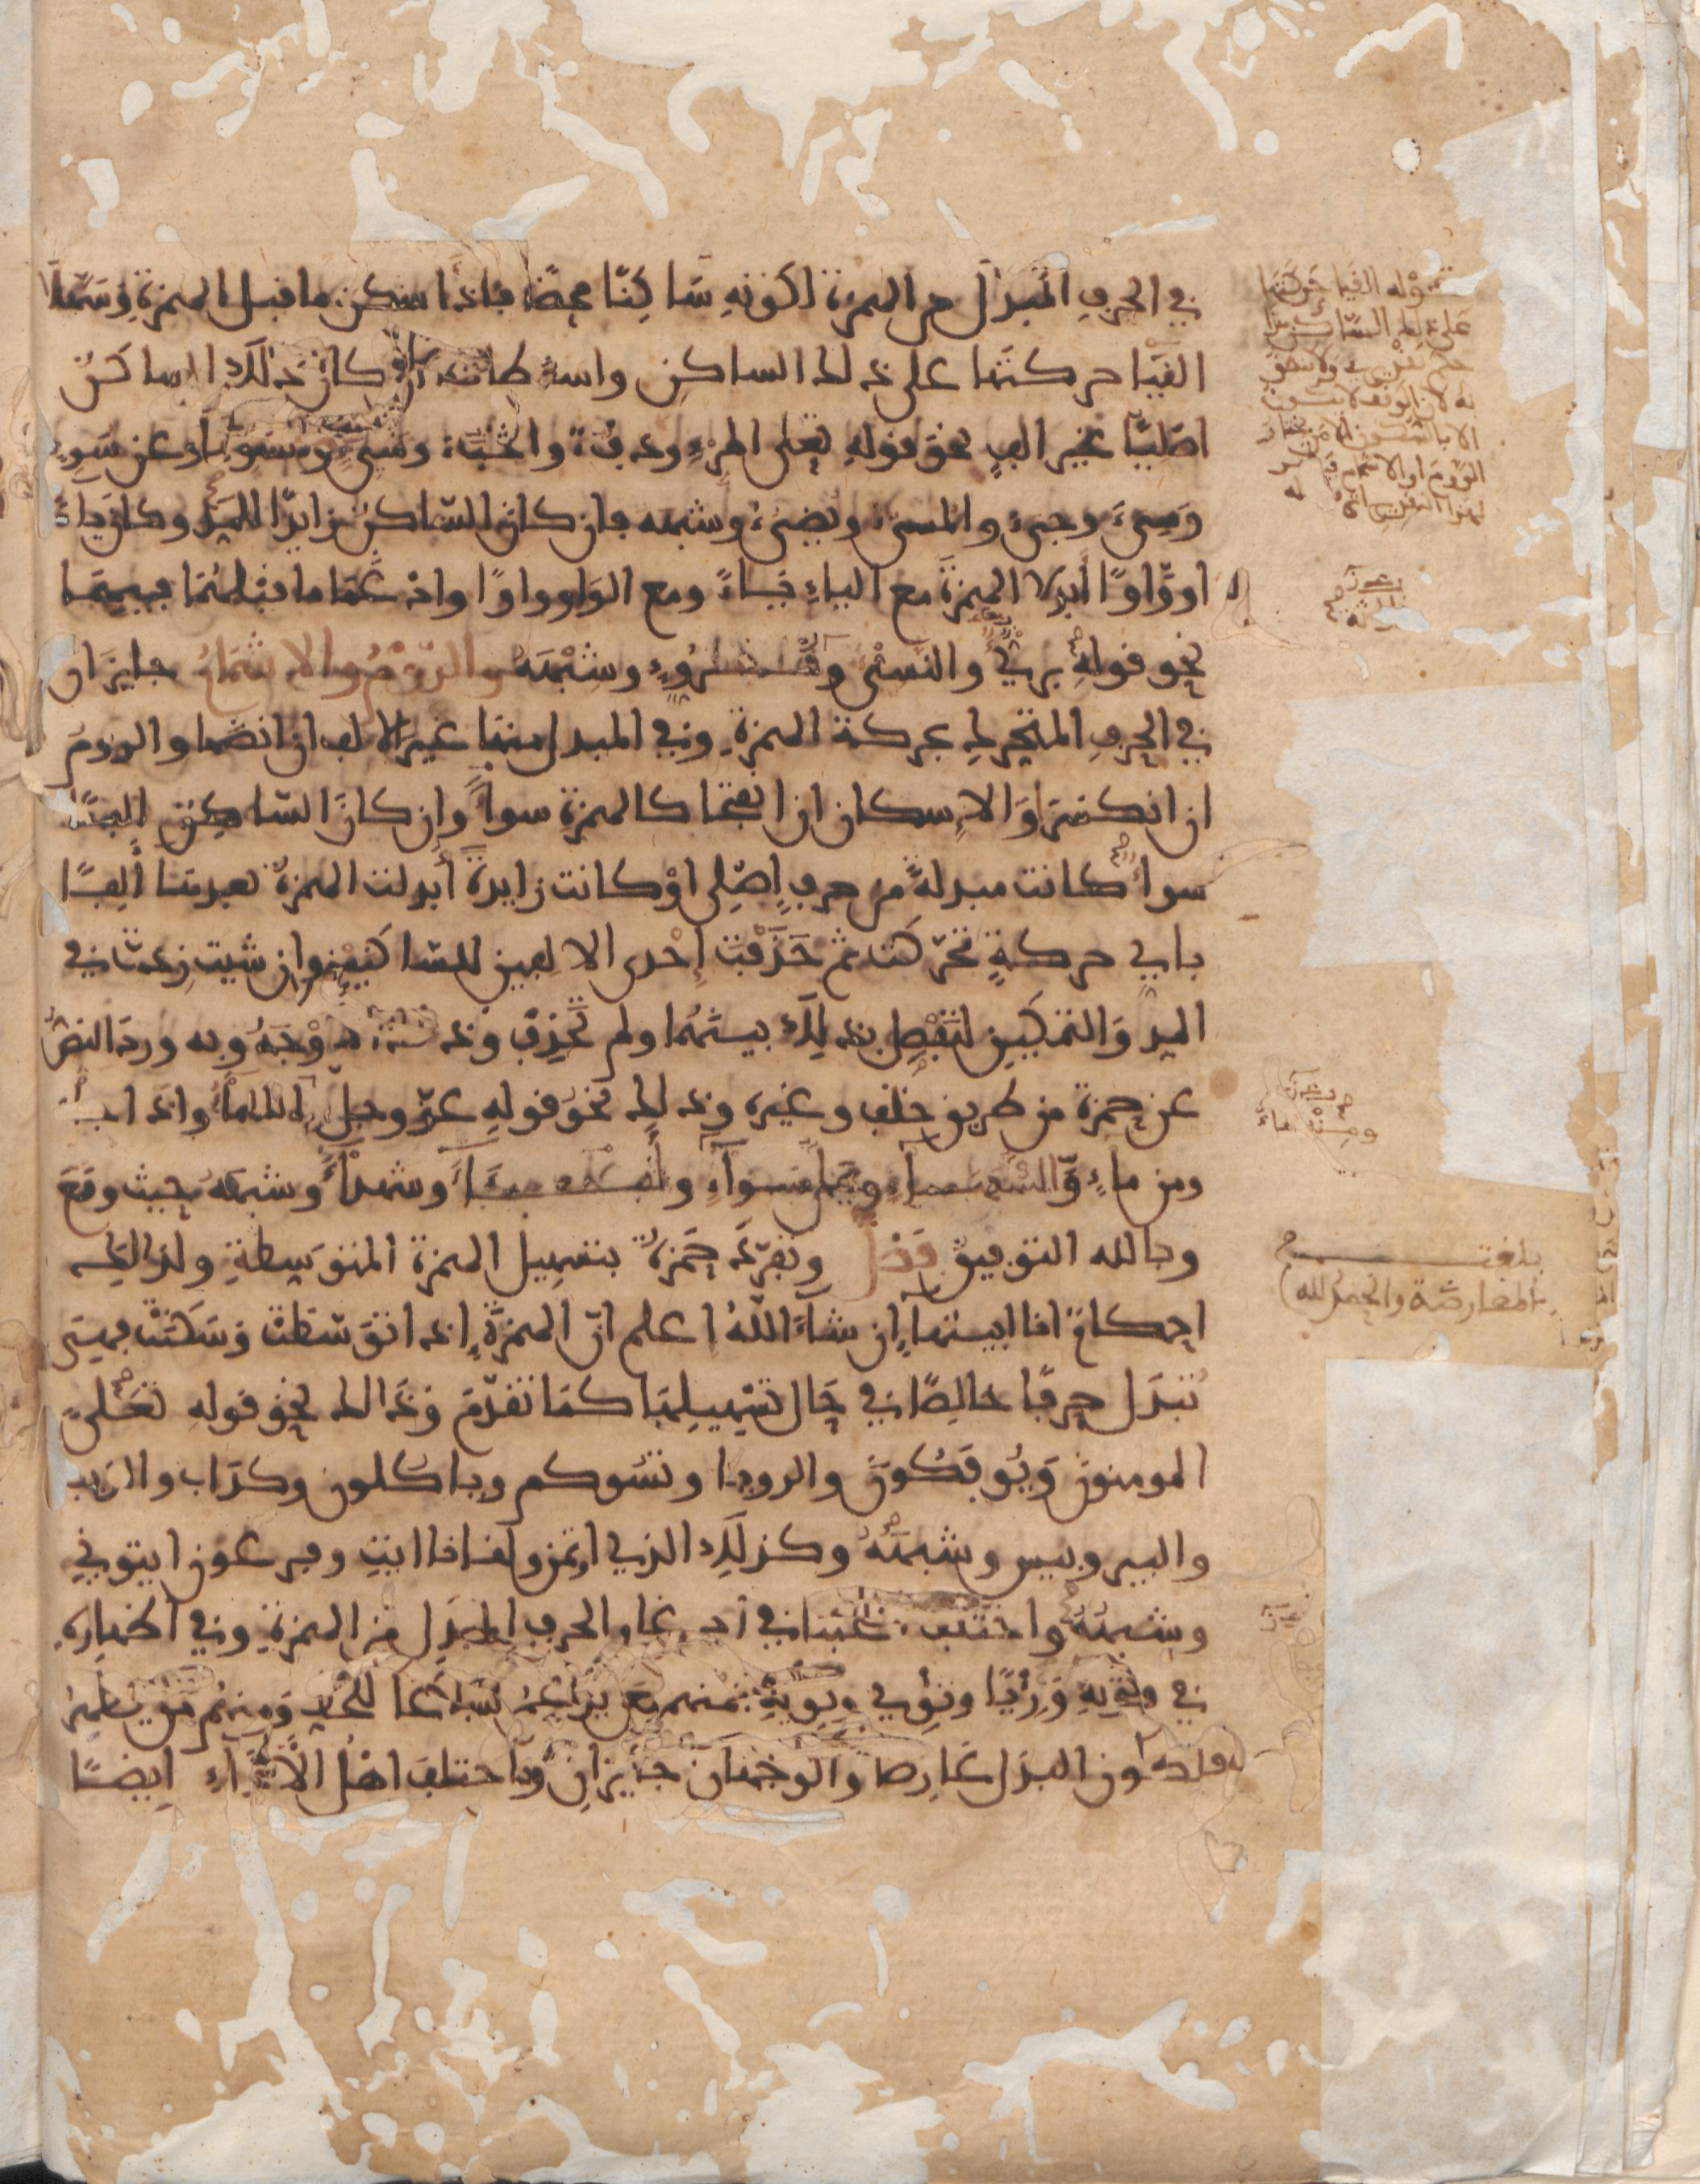 في الحرف المبدل من الهمزة لكونه ساكنا محضا فاذا سكن ما قبل الهمزة وسهلا
القيا حركتها على ذلك الساكن واسقطاها ان كان ذلك الساكن
اصليا غير الف نحو قوله تعلى المرء ودفء والخبء وشيء وسوء وعن سوء
وسيء وجيء والمسيء ويضيء وشبهه فان كان الساكن زايدا للمد وكان ياء
او واوا ابدلا الهمزة مع الياء ياء ومع الواو واوا وادغما ما قبلهما فيهما
نحو قوله بريء والنسيء وقروء وشبهه والروم والاشمام جايزان
في الحرف المتحرك بحركة الهمزة وفي المبدل منها غير الالف ان انضما والروم
ان انكسرا والاسكان ان انفتحا كالهمزة سواء وان كان الساكن الفا
سواء كانت مبدلة من حرف اصلي او كانت زايدة ابدلت الهمزة بعدها الفا
باي حركة تحركت ثم حذفت احدى الالفين للساكنين وان شيت زدت في
المد والتمكين لتفصل بذلك بينهما ولم تحذف وذلك اوجه وبه ورد النص
عن حمزة من طريق خلف وغيره وذلك نحو قوله عز وجل الماء واذا
ومن ماء والسماء وعلى سواء وشهداء وشبهه حيث وقع
وبالله التوفيق فصل وتفرد حمزة بتسهيل الهمزة المتوسطة ولذلك
احكام انا ابينها ان شاء الله اعلم ان الهمزة اذا توسطت وسكنت فهي
تبدل حرفا خالصا في حال تسهيلها كما تقدم وذلك نحو قوله تعلى
المومنون ويوفكون والرويا وتسوكم وياكلون وكداب والذيب
والبير وبيس وشبهه وكذلك الذي اوتمن ولقاءنا ايت وفرعون ايتوني
وشبهه واختلف اصحابنا في ادغام الحرف المبدل من الهمزة وفي اظهاره
في وتويه ورئيا وتؤي وتويه فمنهم من يدغم اتباعا للخط ومنهم من يظهر
لكون البدل عارضا والوجهان جايزان واختلف اهل الاداء ايضا
قوله القيا حركتها
على ذلك الساكن
الا بالسكون
الروم او الاشمام
بلغت
المعارضة والحمد لله